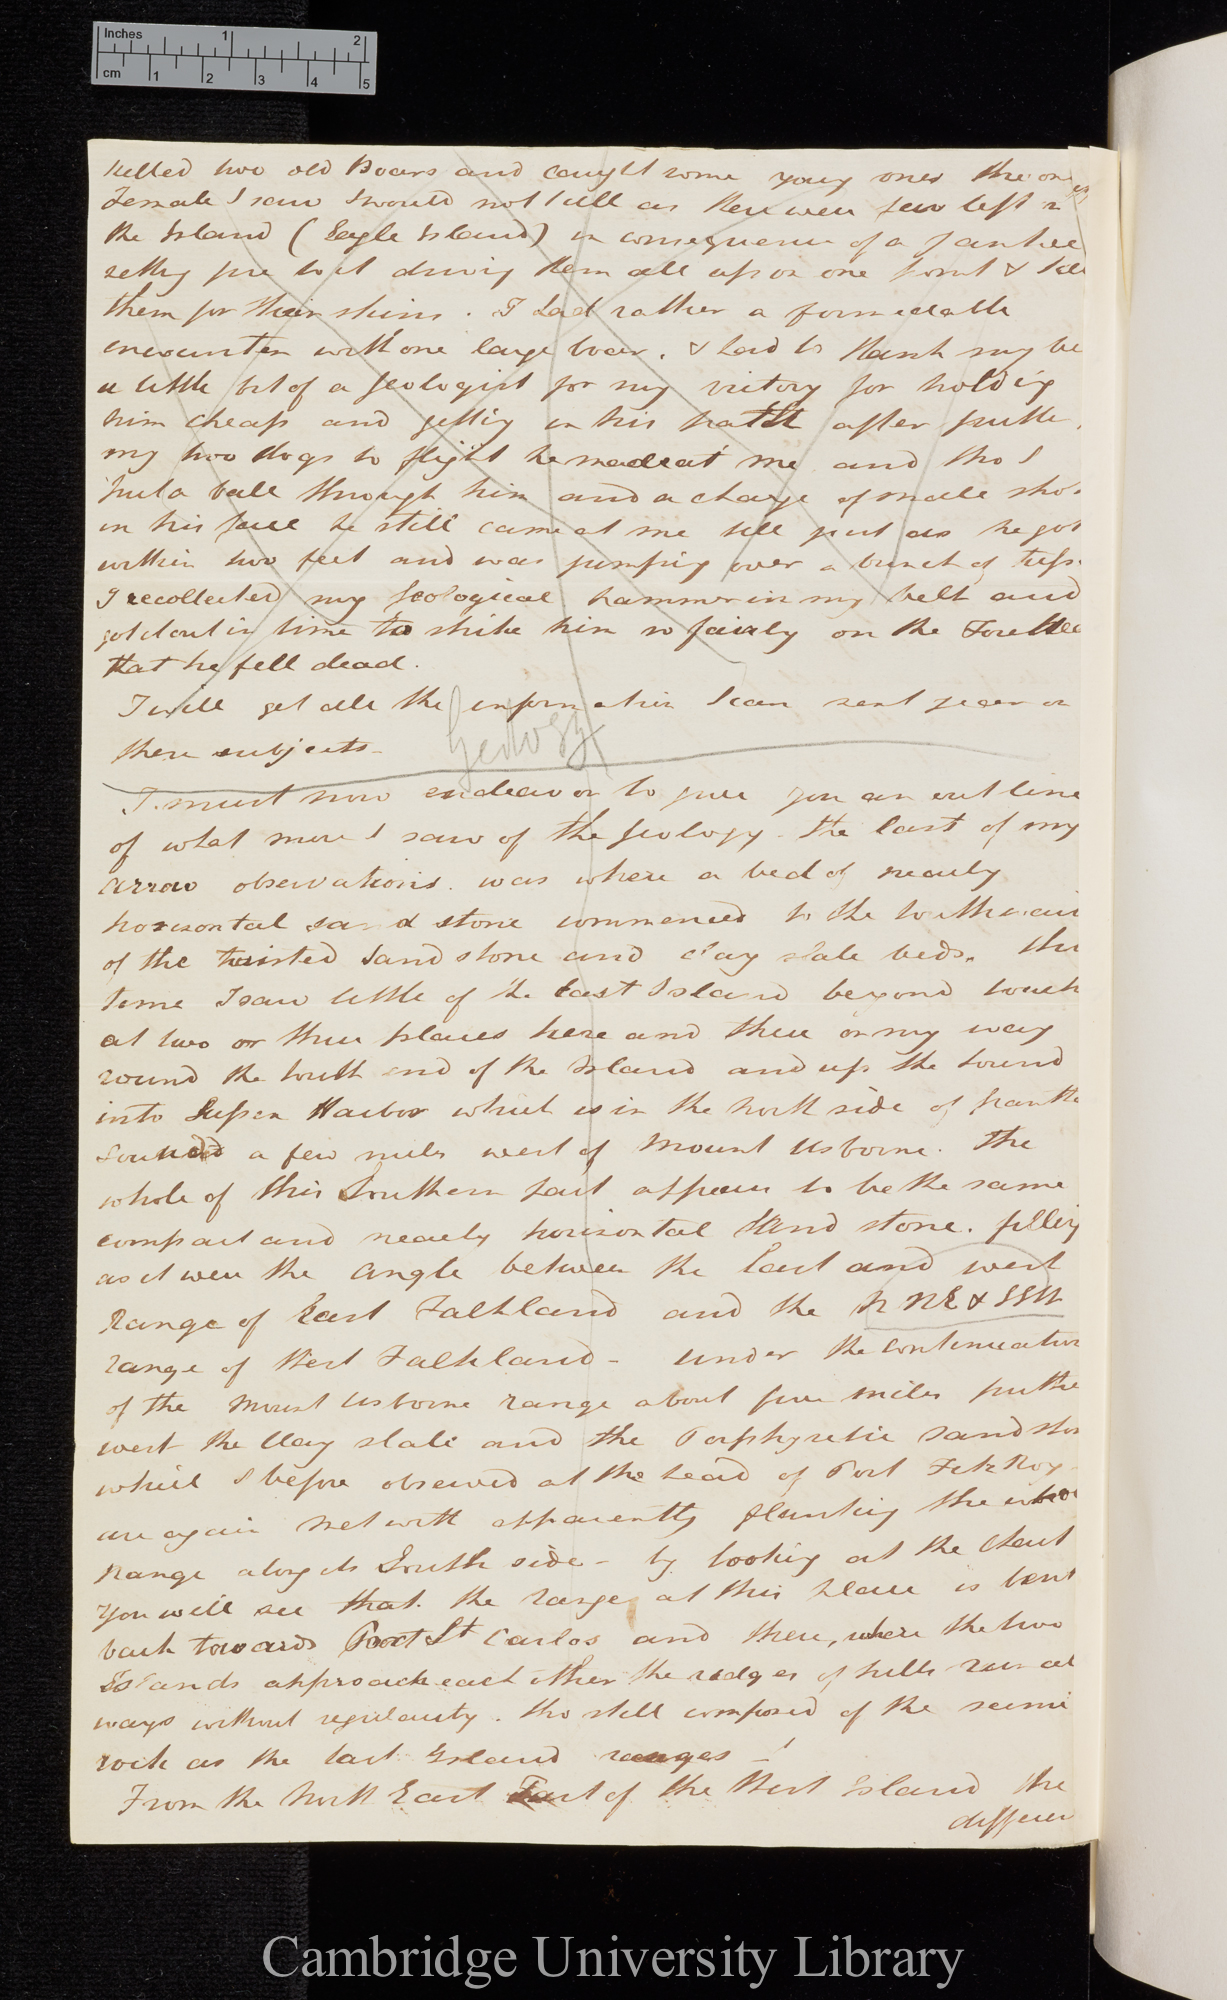 Inches 1 2
cm 1 2 3 4 5
killed two old Boars and caught some young ones the only
Female I saw I would not kill as there were few left on
the Island (Eagle Island) in consequence of a Yankee
setting fire to it driving them all up on one point & kill
them for their skins. I had rather a formidable
encounter with one large boar. & had to thank my be
a little bit of a Geologist for my victory for holding
him cheap and getting in his path after putti
my two dogs to flight he made at me and tho I
put a ball through him and a charge of small shot
in his face he still came at me till just as he got
within two feet and was jumping over a bunch of tuss
I recollected my Geological hammer in my belt and
got it out in time to strike him so fairly on the Forehead
that he fell dead.
I will get all the information I can next year on
these subjects -
Geology
I must now endeavor to give you an outline
of what more I saw of the Geology. the last of my
arrow observations. was where a bed of nearly
horizontal sand stone commenced to the Southward
of the twisted Sand stone and clay slate beds. this
time I saw little of the East Island beyond touch
at two or three places here and there on my way
round the South end of the Island and up the Sound
into Harbor which is in the North side of Grantham
Sound a few miles west of Mount Usborne. The
whole of this Southern part appears to be the same
compact and nearly horizontal Sand stone. filling
as it were the angle between the East and west
Range of East Falkland and the NNE & SSW
range of West Falkland - under the continuation
of the Mount Usborne range about five miles further
west the Clay slate and the Porphyretic Sand ston
which I before observed at the head of Port Fitz Roy
are again met with apparently flanking the whole
Range along its South side - by looking at the Chart
you will see that. the range at this place is bent
back towards Port St Carlos and there, where the two
Islands approach each other the ridges of hills run al
ways without regularity. tho still composed of the same
rock as the East Island ranges -
From the North East Part of the West Island the
differen
Cambridge University Library